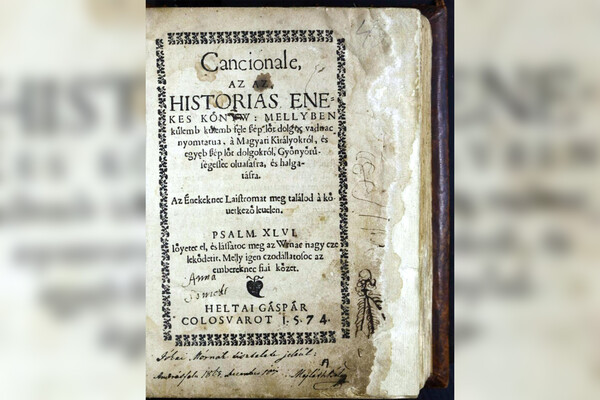 Cancionale,
AZ AZ,
HISTORIAS ENE-
KES KÖNYW: MELLYBEN
külemb külemb féle szép löt dolgoc vadnac
nyomtatua, à Magyari Királyokról, és
egyéb szép löt dolgokról, Gyönyörü-
ségessec oluasásra, és halga-
tásra.
Az Énekeknec Laistromat meg találod à kö-
uetkezö leuelen.
PSALM. XLVI.
Iöyetec el, és lássátoc meg az Wrnac nagy cze
leködetit. Melly igen czodállatosoc az
embereknec fiai közöt.
Anna
HELTAI GÁSPÁR
COLOSVAROT 1.5.7 4.
Jókai Mórnak tisztelete jeléül:
december